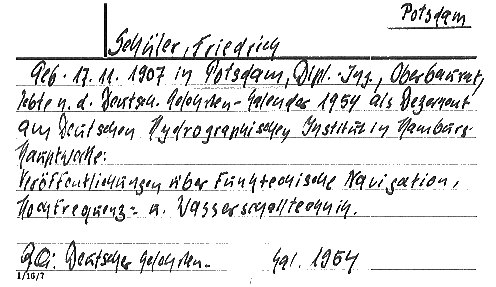 Potsdam
Schüler, Friedrich
Geb. 17.11. 1907 in Potsdam, Dipl.-Ing., Oberbaurat,
lebte n. d. Deutsch. Gelehrten-Kalender 1954 als Dezernent
am Deutschen Hydrographischen Institut in Hamburg.
Hauptwerke:
Veröffentlichungen über Funktechnische Navigation,
Hochfrequenz- u. Wasserschalltechnik.
Qu: Deutscher Gelehrten- Kal. 1954
1/16/7